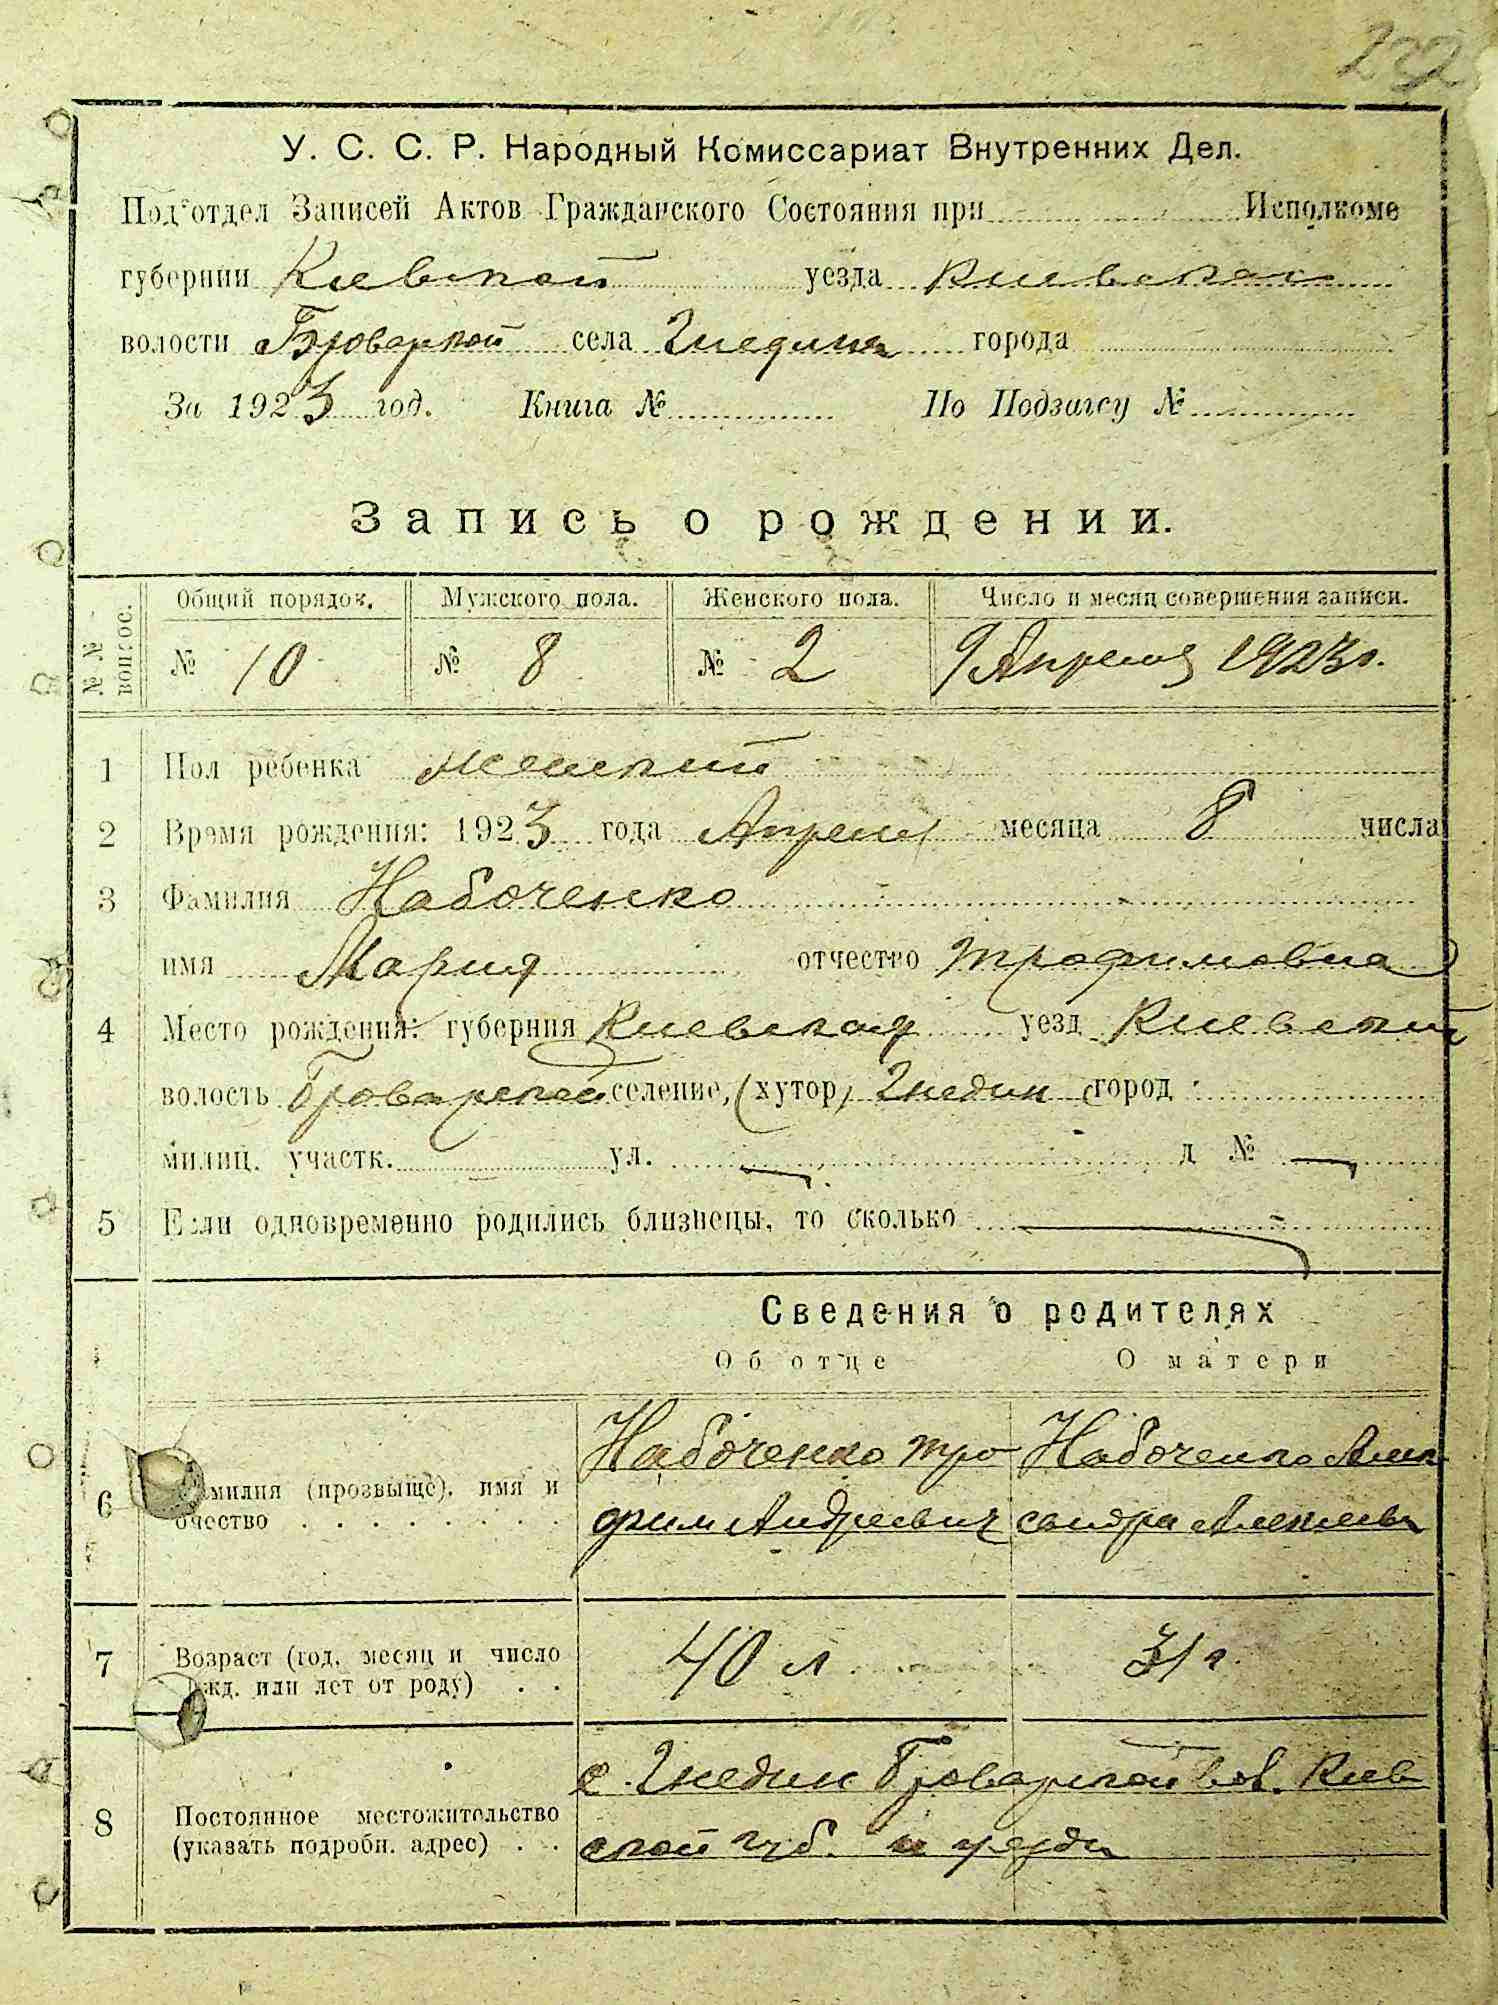 У. С. С. Р. Народный Комиссариат Внутренних Дел.
Под'отдел Записей Актов Гражданского Состояния при Исполкоме
губернии Киевской уезда Киевского
волости Броварской села Гнедина города
За 1923 год. Книга № По Подзагсу №
Запись о рождении.
№ № вопрос.
Общий порядок. Мужского пола. Женского пола. Число и месяц совершения записи.
№ 10 № 8 № 2 9 Апреля 1923г.
1 Пол ребенка женский
2 Время рождения: 1923 года Апреля месяца 8 числа
3 Фамилия Набоченко
имя Мария отчество Трофимовна
4 Место рождения: губерния Киевская уезд Киевский
волость Броварской селение, (хутор) Гнедин город
милиц. участк. ул. — д № —
5 Если одновременно родились близнецы, то сколько —
Сведения о родителях
Об отце О матери
6 Фамилия (прозвище), имя и Набоченко Тро Набоченко Алек
очество фим Андреевич сандра Алексеева
7 Возраст (год, месяц и число 40 л 31 г.
рожд. или лет от роду)
8 Постоянное местожительство с. Гнедин Броварской вол. Киев
(указать подробн. адрес) ской губ. и уезда